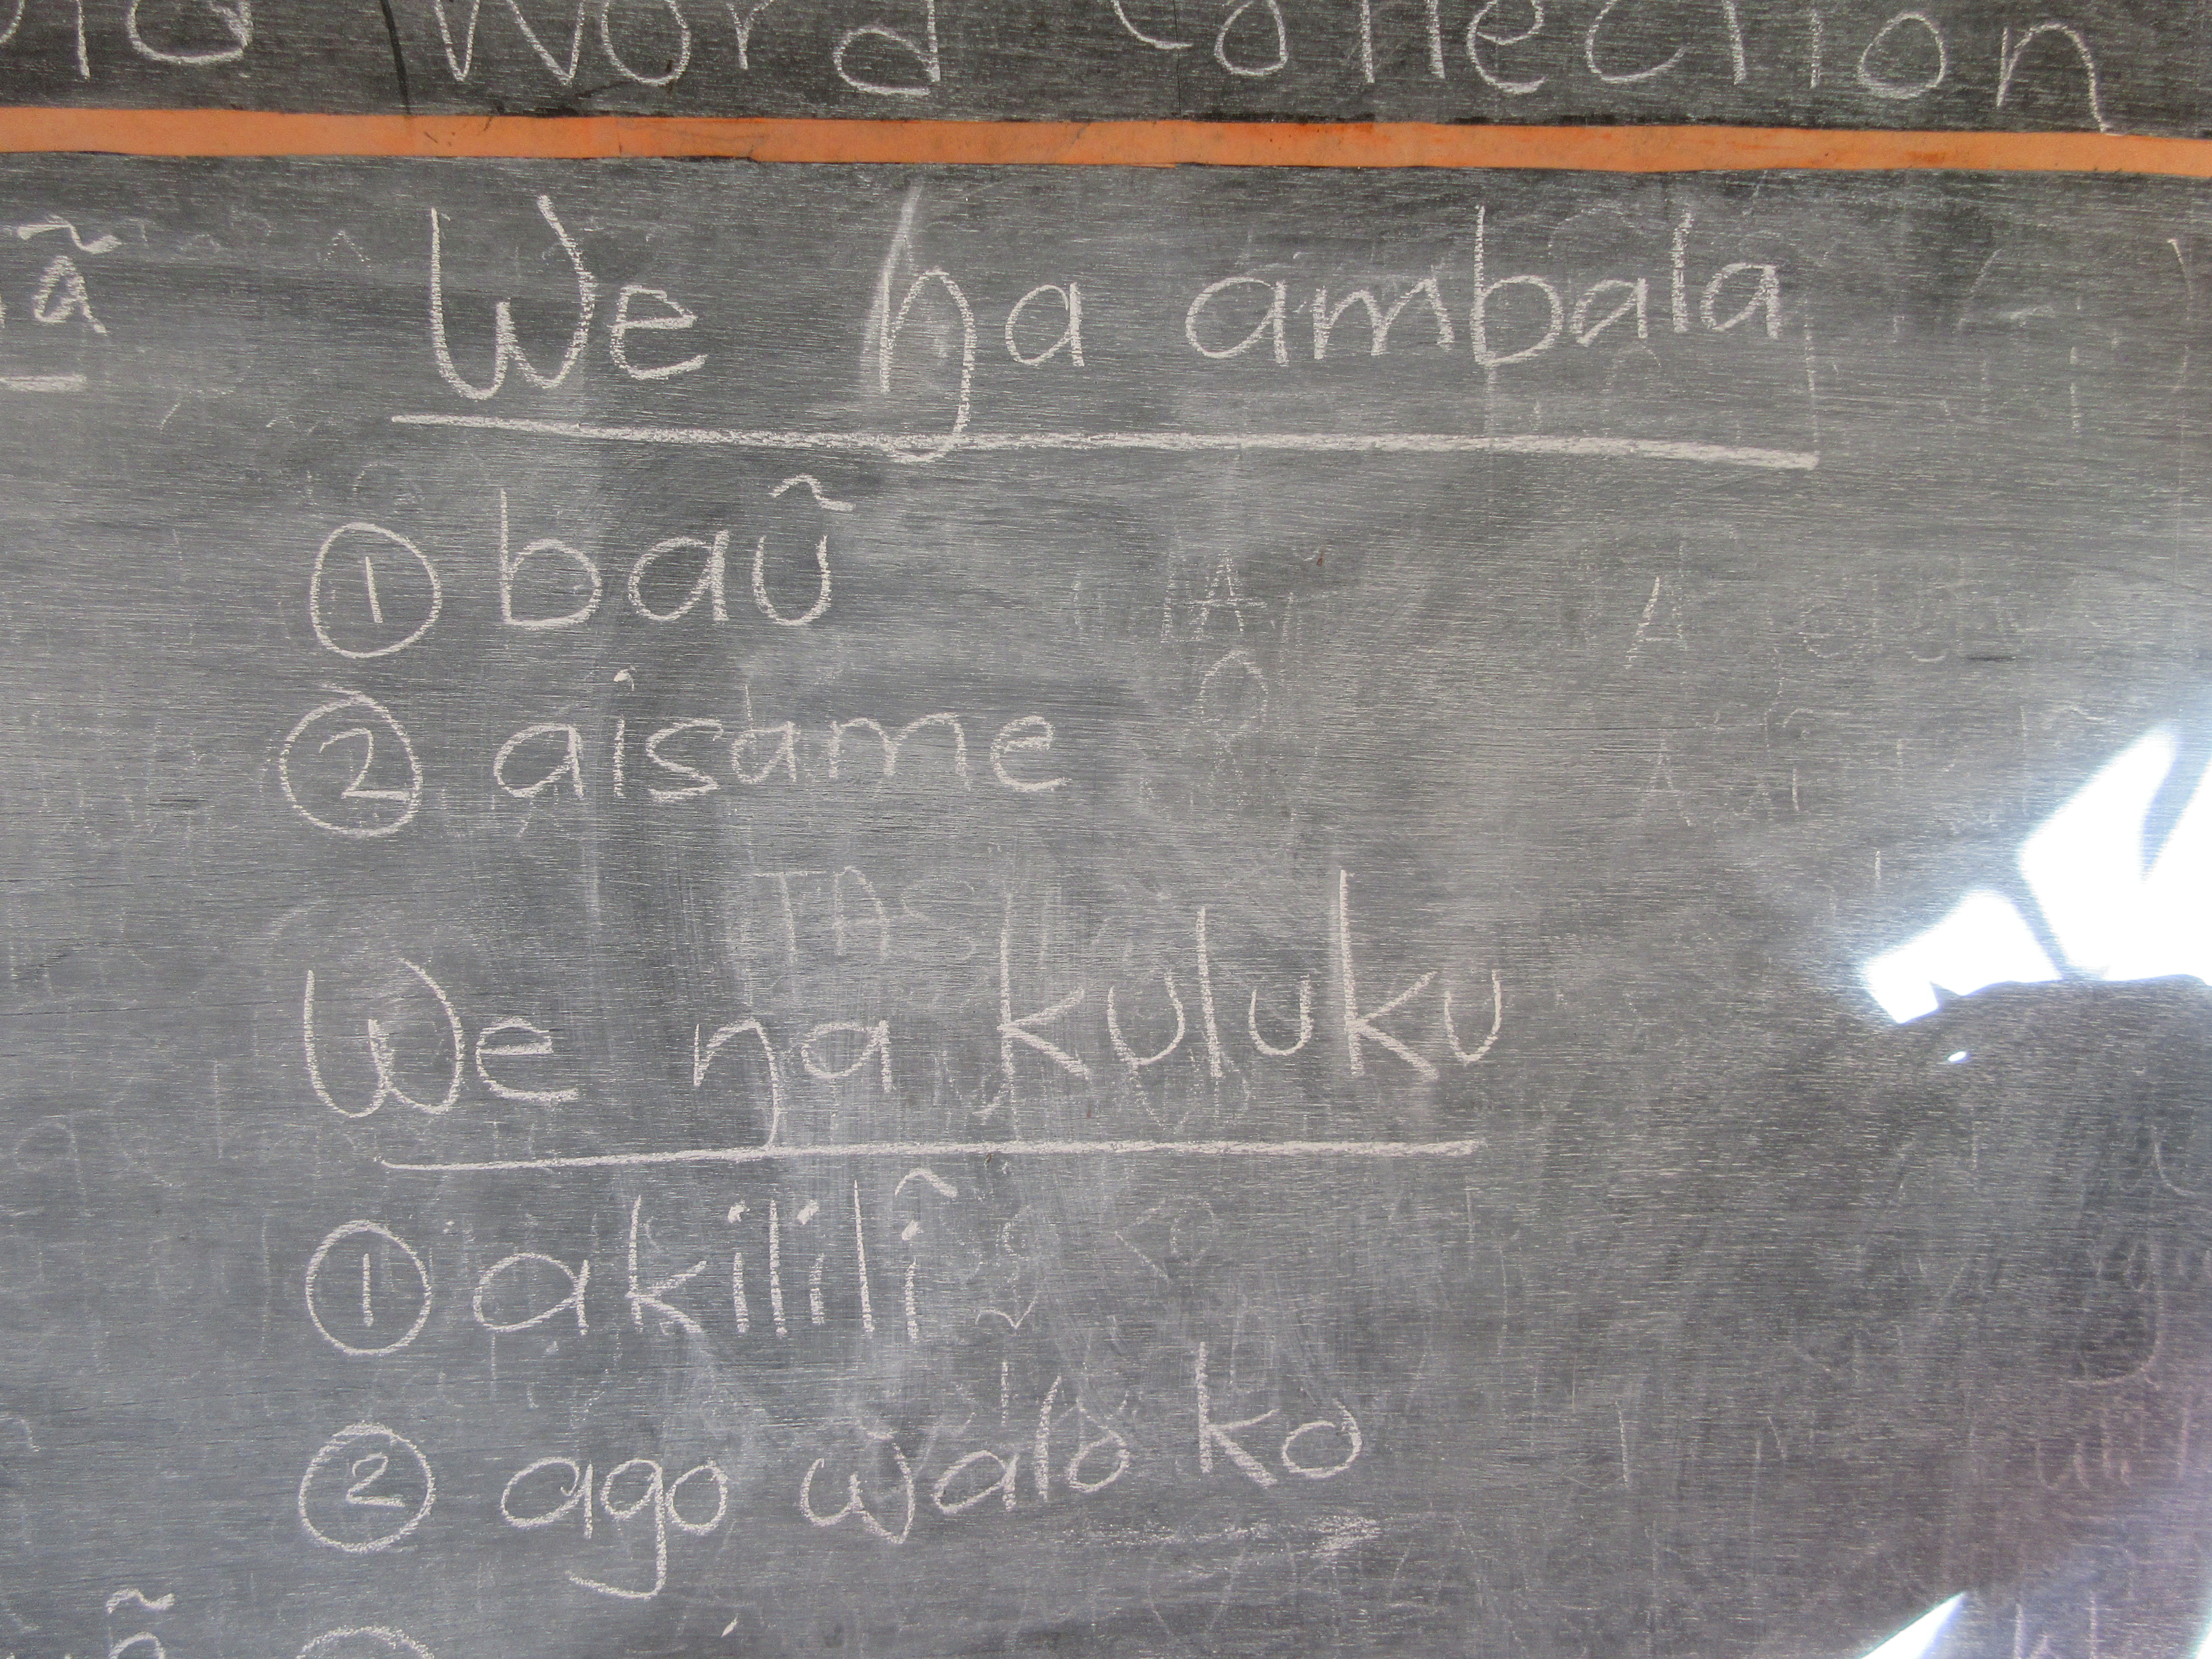 Word Collection
We ŋa ambala
① baũ
② aisame
We ŋa kuluku
① akililĩ
② ago walo ko